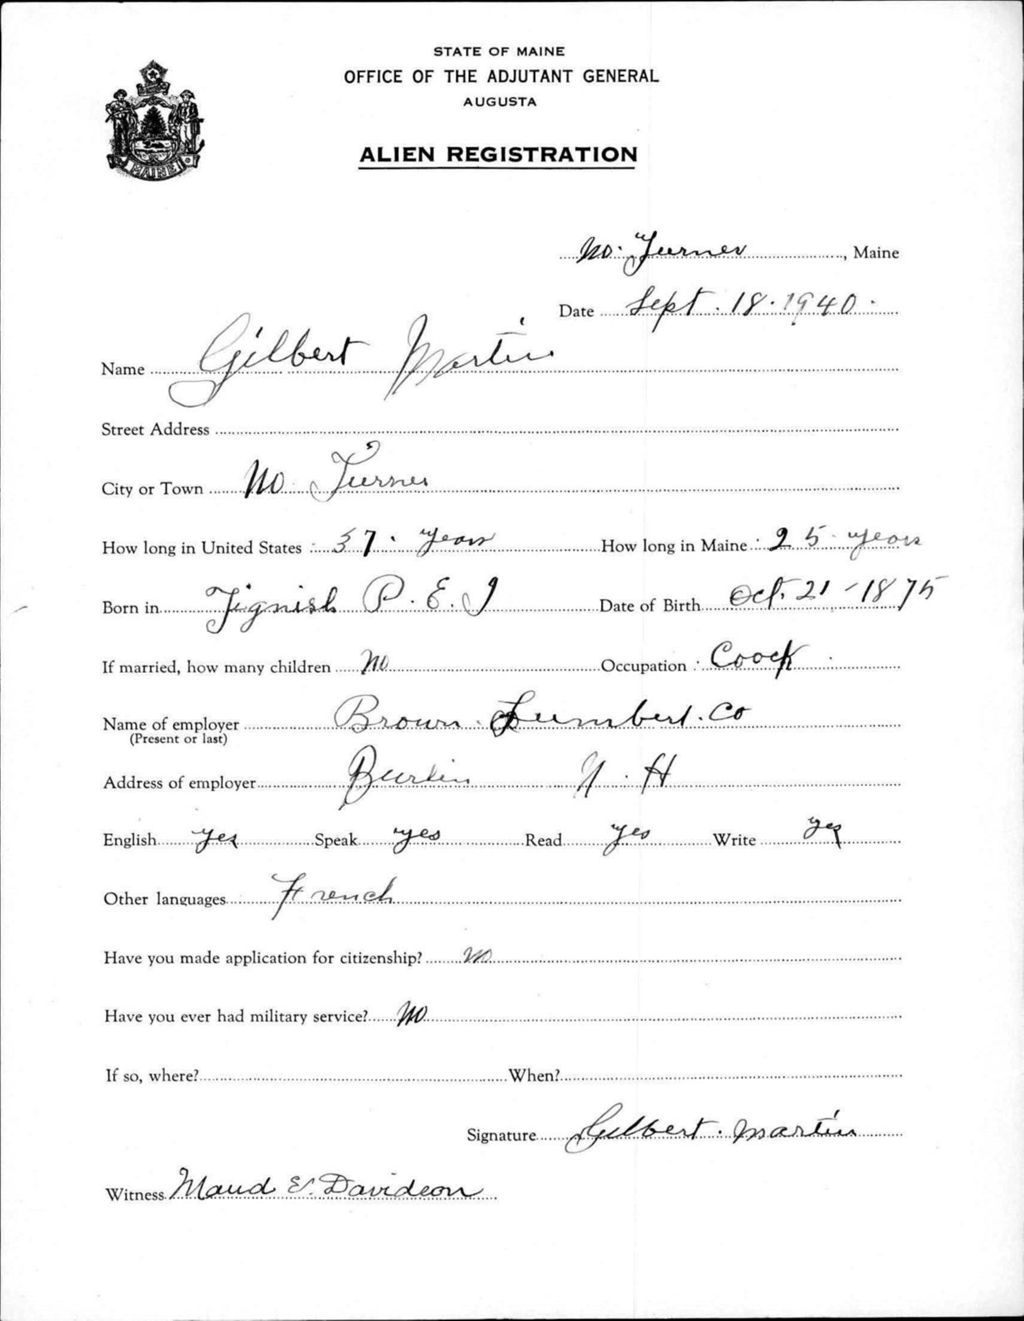 STATE OF MAINE
OFFICE OF THE ADJUTANT GENERAL
AUGUSTA
ALIEN REGISTRATION
MAINE
No. Turner, Maine
Date Sept. 18. 1940.
Name Gilbert Martin
Street Address
City or Town No Turner
How long in United States 37. years How long in Maine 25 years
Born in Tignish P. E. I Date of Birth Oct. 21 - 1875
If married, how many children No Occupation Coock
Name of employer Brown Lumbert. Co
(Present or last)
Address of employer Burlin N. H
English yes Speak yes Read yes Write yes
Other languages French
Have you made application for citizenship? No
Have you ever had military service? No
If so, where? When?
Signature Gilbert. Martin
Witness Maud E. Davidson